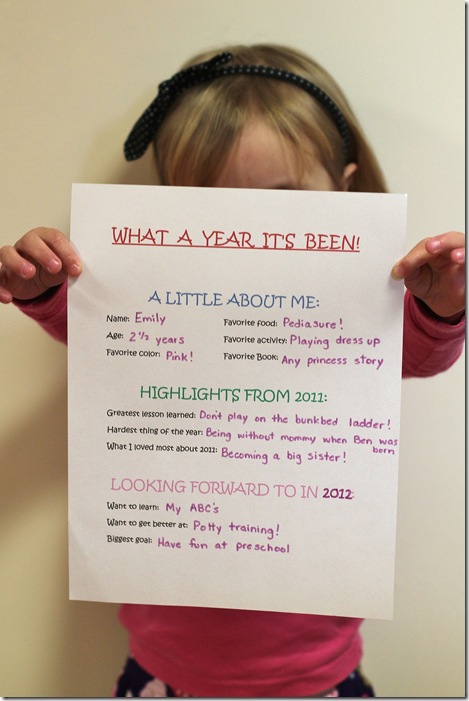 WHAT A YEAR IT'S BEEN!
A LITTLE ABOUT ME:
Name: Emily Favorite food: Pediasure!
Age: 2 1/2 years Favorite activity: Playing dress up
Favorite color: Pink! Favorite Book: Any princess story
HIGHLIGHTS FROM 2011:
Greatest lesson learned: Don't play on the bunkbed ladder!
Hardest thing of the year: Being without mommy when Ben was
born
What I loved most about 2011: Becoming a big sister!
LOOKING FORWARD TO IN 2012:
Want to learn: My ABC's
Want to get better at: Potty training!
Biggest goal: Have fun at preschool